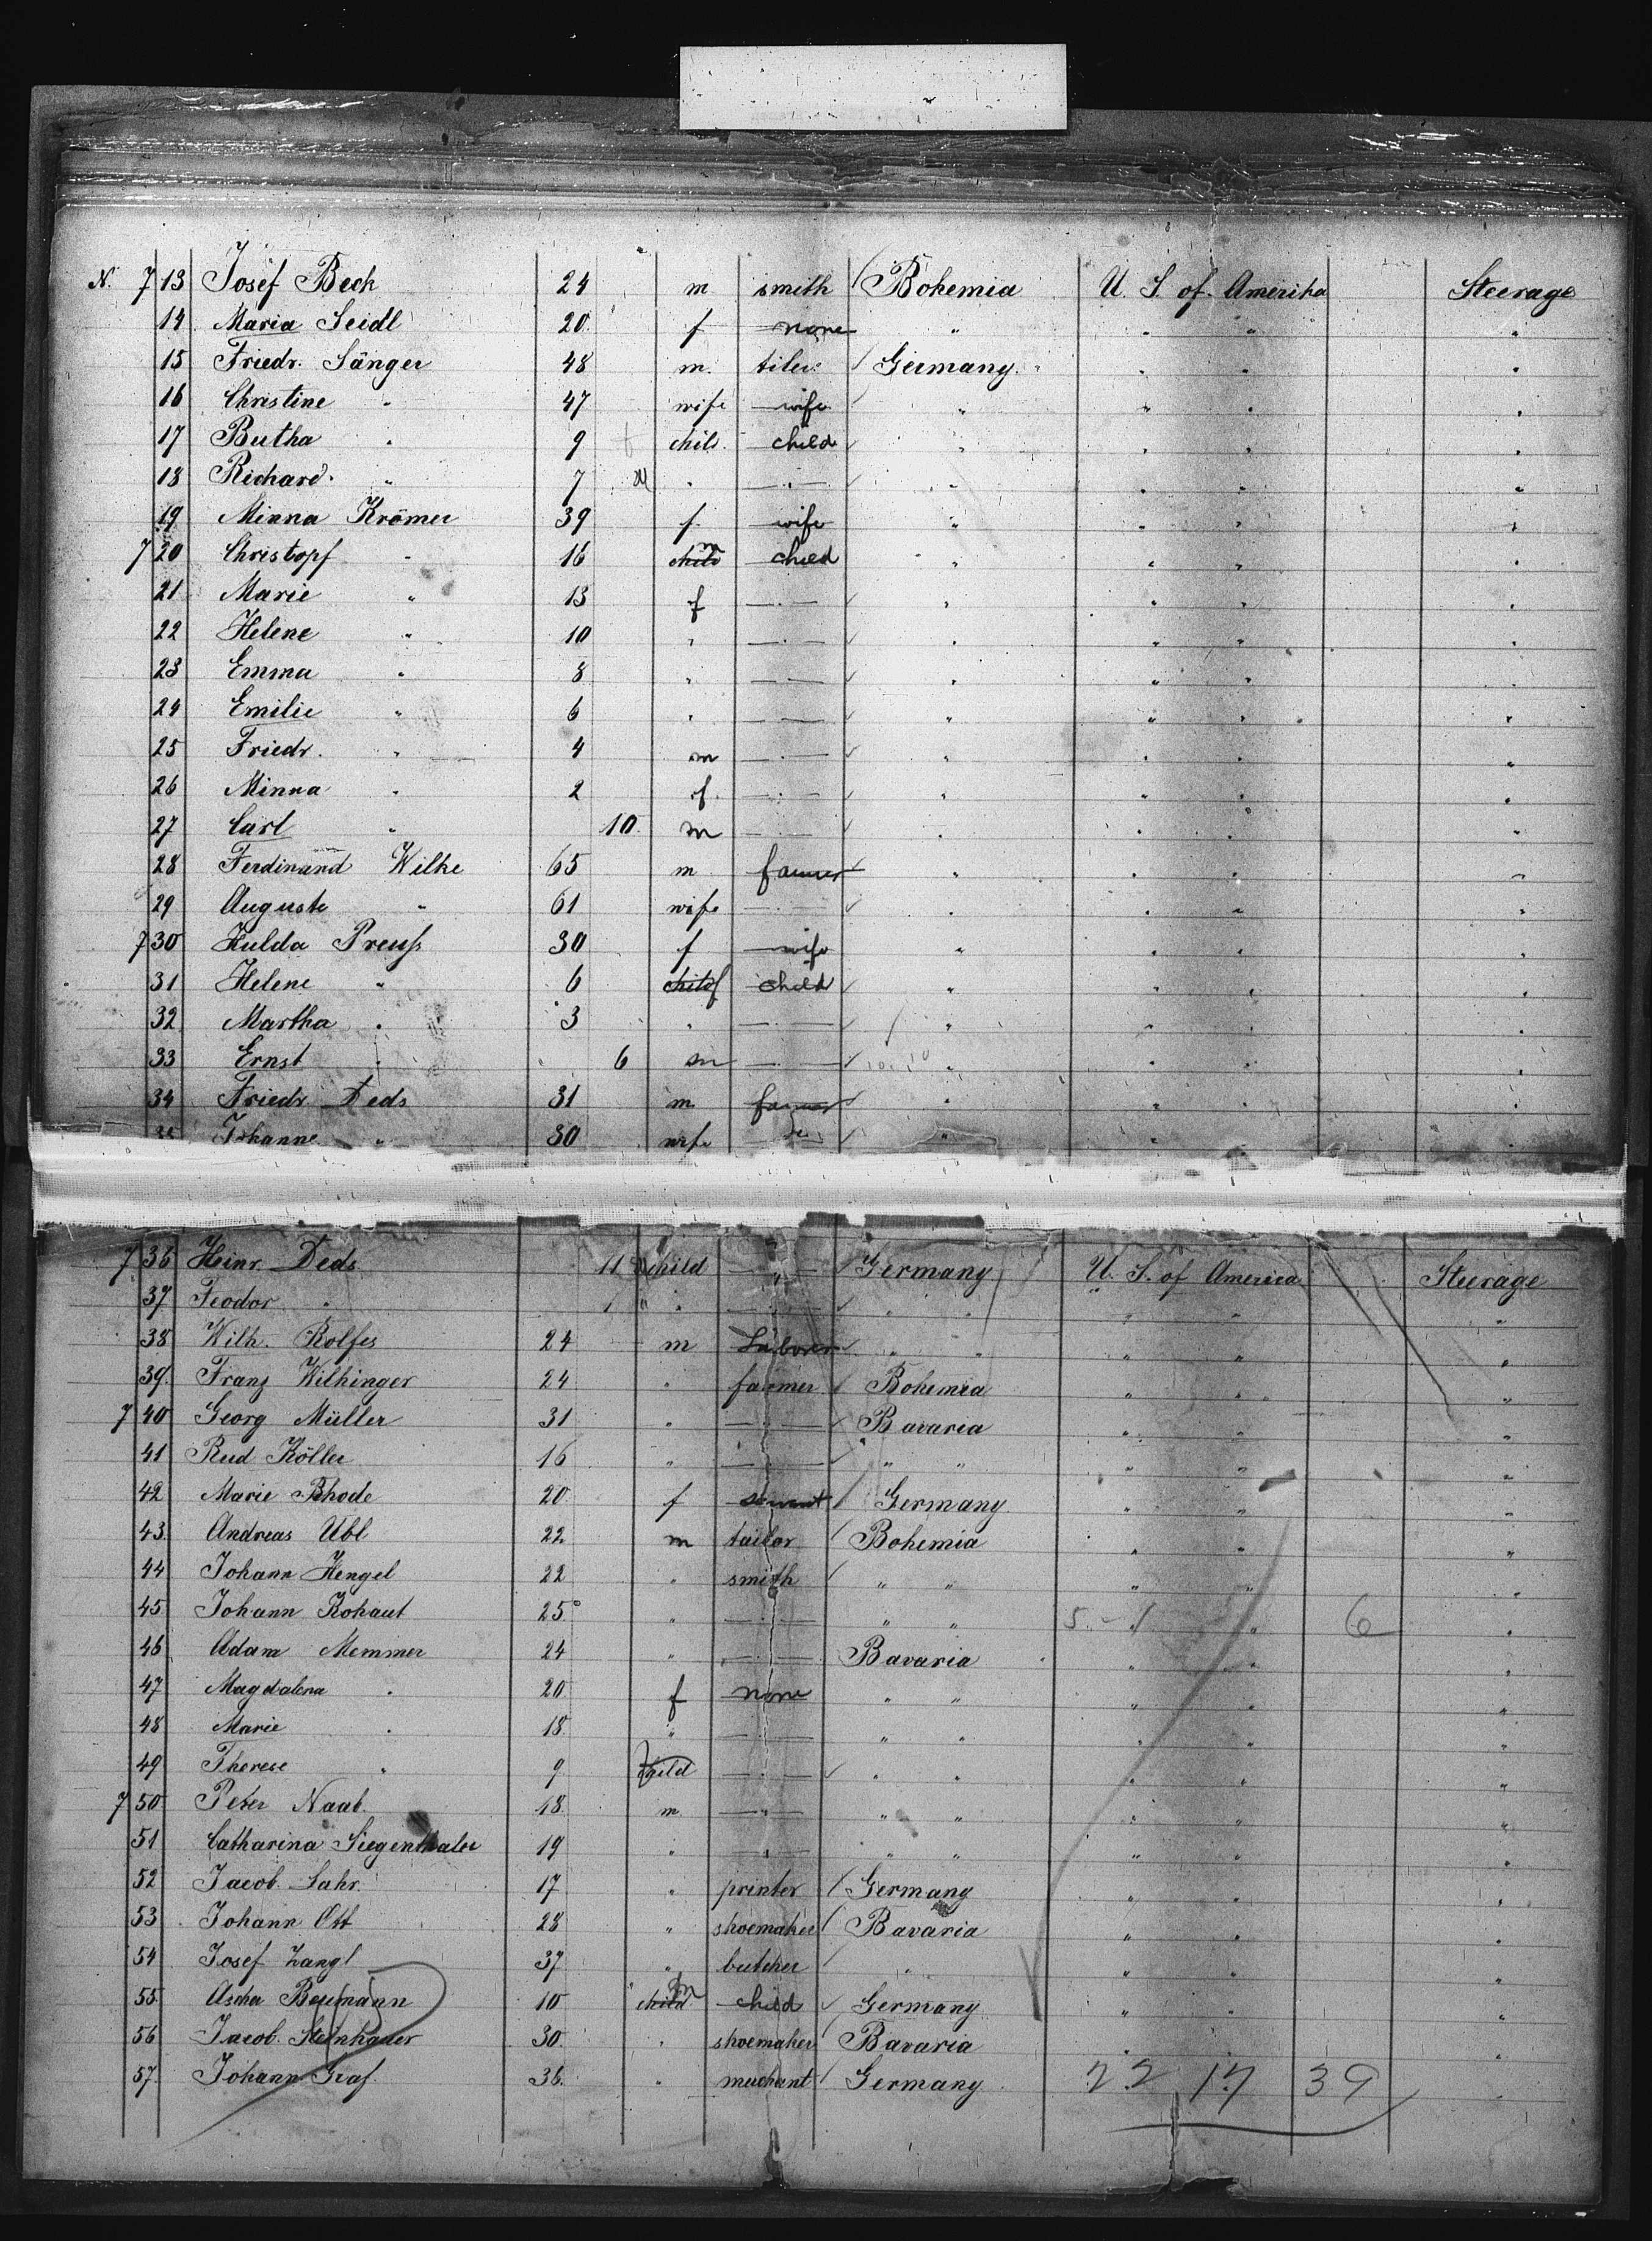 N. 7 13 Josef Beck 24 m smith Bohemia U. S. of Amerika Steerage
14 Maria Seidl 20 f none " " " "
15 Friedr. Sänger 48 m. tiler Germany " " "
16 Christine " 47 wife wife " " " "
17 Butha " 9 child child " " " "
18 Richard " 7 M " " " " " "
19 Minna Krömer 39 f wife " " " "
7 20 Christopf " 16 child m child " " " "
21 Marie " 13 f " " " " "
22 Helene " 10 " " " " " "
23 Emma " 8 " " " " " "
24 Emilie " 6 " " " " " "
25 Friedr. " 4 m " " " " "
26 Minna " 2 f " " " " "
27 Carl " 10 m " " " " "
28 Ferdinand Wilke 65 m farmer " " " "
29 Auguste " 61 wife " " " " "
7 30 Hulda Preuſs 30 f wife " " " "
31 Helene " 6 child f child " " " "
32 Martha " 3 " " " " " "
33 Ernst " 6 m " " " " "
34 Friedr. Deds 31 m farmer " " " "
35 Johanne " 30 wife " " " "
7 36 Heinr. Deds 11 child " Germany U. S. of America Steerage
37 Feodor " " " " " " " " "
38 Wilh. Rolfes 24 m Laborer " " " " "
39. Franz Wilhinger 24 " farmer Bohemia " " "
7 40 Georg Müller 31 " " Bavaria " " "
41 Rud Köller 16 " " " " " " "
42 Marie Rhode 20 f servant Germany " " "
43 Andreas Ubl 22 m tailor Bohemia " " "
44 Johann Hengel 22 " smith " " " " "
45 Johann Kohaut 25 " " " " 5 - 1 " 6 "
46 Adam Memmer 24 " " Bavaria " " "
47 Magdalena " 20 f none " " " " "
48 Marie " 18 " " " " " " "
49 Therese " 9 child " " " " " "
7 50 Peter Naab 48 m " " " " " "
51 Catharina Siegenthaler 19 " " " " " " "
52 Jacob Lahr 17 " printer Germany " " "
53 Johann Ott 28 " shoemaker Bavaria " " "
54 Josef Zangl 37 " butcher " " " "
55 Ascha Baumann 10 child m child Germany " " "
56 Jacob Steinhauer 30 " shoemaker Bavaria " " "
57 Johann Graf 36 " merchant Germany 22 17 39 "